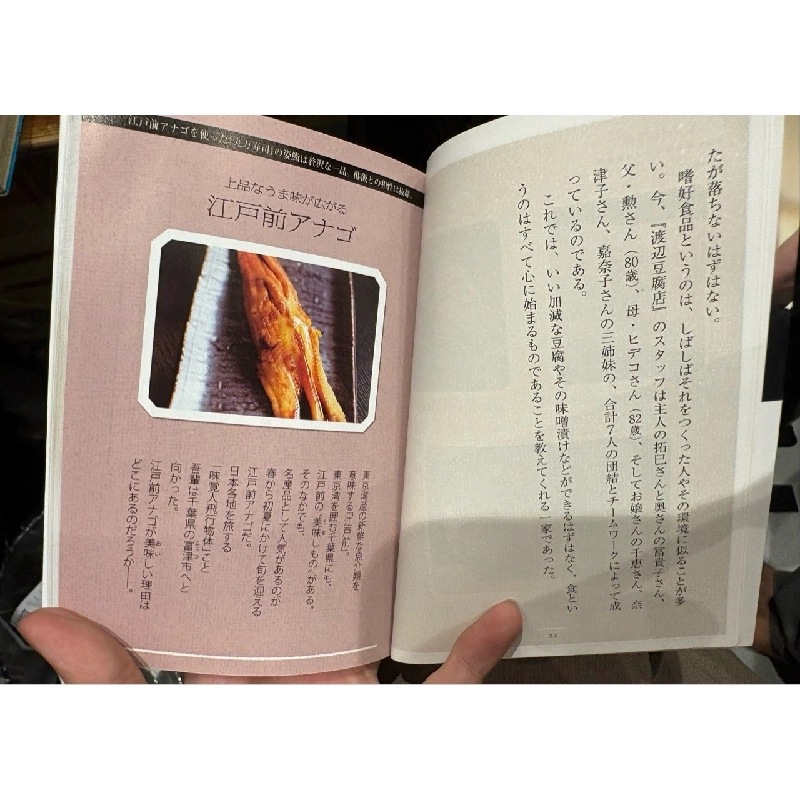 たが落ちないはずはない。
嗜好食品というのは、しばしばそれをつくった人やその環境に似ることが多
い。今、『渡辺豆腐店』のスタッフは主人の拓巳さんと奥さんの富貴子さん、
父・勲さん（80歳）、母・ヒデコさん（82歳）、そしてお嬢さんの千恵さん、奈
津子さん、嘉奈子さんの三姉妹の、合計7人の団結とチームワークによって成
っているのである。
これでは、いい加減な豆腐やその味噌漬けなどができるはずはなく、食とい
うのはすべて心に始まるものであることを教えてくれる一家であった。
江戸前アナゴを使った
の姿鮨は贅沢な一品。
上品なうま味が広がる
江戸前アナゴ
東京湾産の新鮮な魚介類を
意味する「江戸前」。
東京湾を囲む千葉県にも、
江戸前の“美味しもの”がある。
そのなかでも、
名産品として人気があるのが
春から初夏にかけて旬を迎える
江戸前アナゴだ。
日本各地を旅する
「味覚人飛行物体」こと
吾輩は千葉県の富津市へと
向かった。
江戸前アナゴが美味しい理由は
どこにあるのだろうか―。